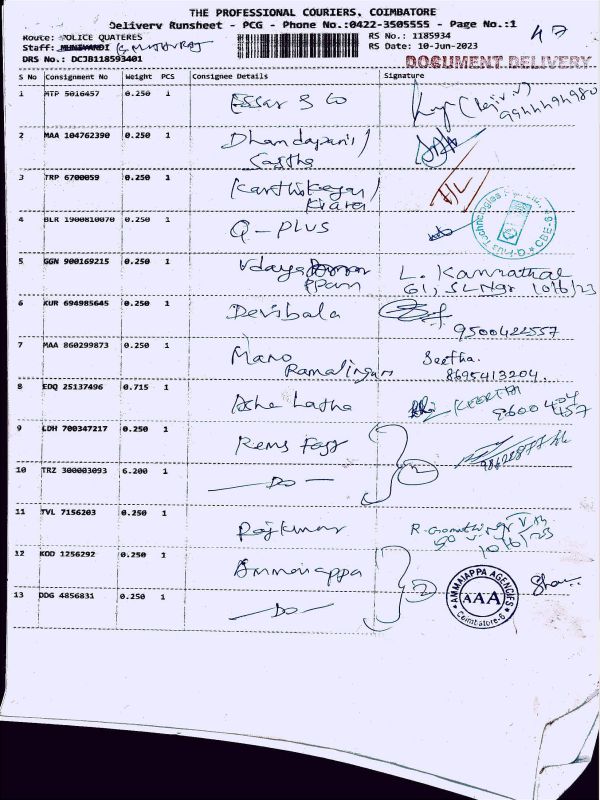 THE PROFESSIONAL COURIERS, COIMBATORE
Delivery Runsheet - PCG - Phone No.:0422-3505555 - Page No.:1
Route: POLICE QUATERES
RS No.: 1185934
47
Staff: MUNIYANDI
RS Date: 10-Jun-2023
DRS No.: DCJB118593401
DOCUMENT DELIVERY
S No Consignment No Weight PCS Consignee Details Signature
1 MTP 5016457 0.250 1 Essar & Co
2 MAA 104762390 0.250 1 Dhandapani/
Sastha
3 TRP 6700059 0.250 1 Karthikeyan/
Kiara
4 BLR 1900810070 0.250 1 Q-PLUS
Q-Plus Technologies CBE-6
5 GGN 900169215 0.250 1 Udaya L. Kamrathal
ppan 61, SL Ngr 10/6/23
6 KUR 694985645 0.250 1 Devibala
9500422557
7 MAA 860299873 0.250 1 Mano Seetha.
Ramalingam 8695413204.
8 EDQ 25137496 0.715 1 Asha Latha KEERTHI 9600404
457
9 LDH 700347217 0.250 1 Rems Fast
10 TRZ 300003093 6.200 1 — Do — 2
11 TVL 7156203 0.250 1 Rajkumar
10/6/23
12 KOD 1256292 0.250 1 Ammaiappa
2
AMMAIAPPA AGENCIES
AAA
Coimbatore-6
13 DDG 4856831 0.250 1 — Do —